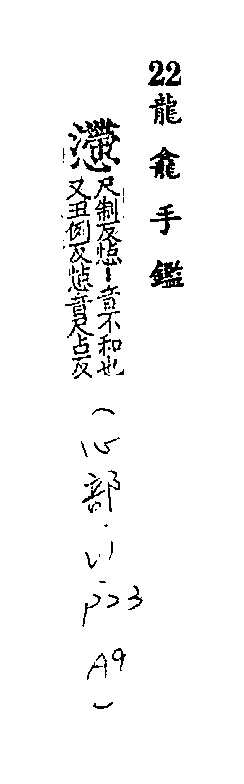 22龍龕手鑑
懘
尺制反惉ー音不和也
又丑例反惉音尺占反
（心部．
p23
A9）